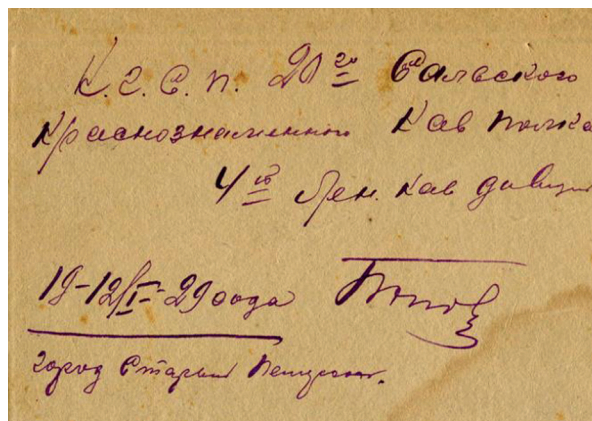 К. Г. С. п. 20го Сальского
Краснознаменного Кав полка
4ой Лен. Кав дивизии
19-12/I-29 года Попов
город Старый Петергоф.